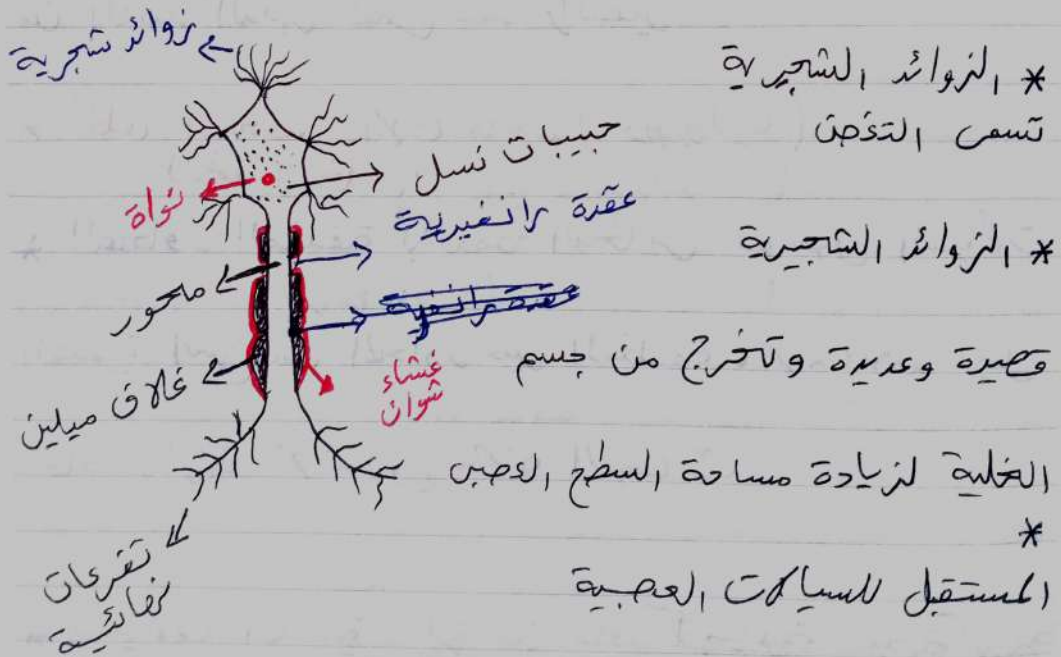 * الزوائد الشجيرية
تسمى التغصن
* الزوائد الشجيرية
قصيرة وعديدة وتخرج من جسم
الخلية لزيادة مساحة السطح العصبي
*
المستقبل للسيالات العصبية
زوائد شجرية
حبيبات نسل
نواة
عقدة رانفيرية
محور
غشاء
شوان
غلاف ميلين
تفرعات
نهائية